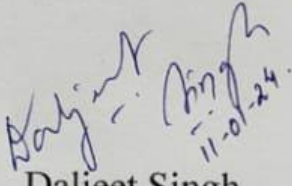 Daljeet Singh
11-01-24.
Daljeet Singh